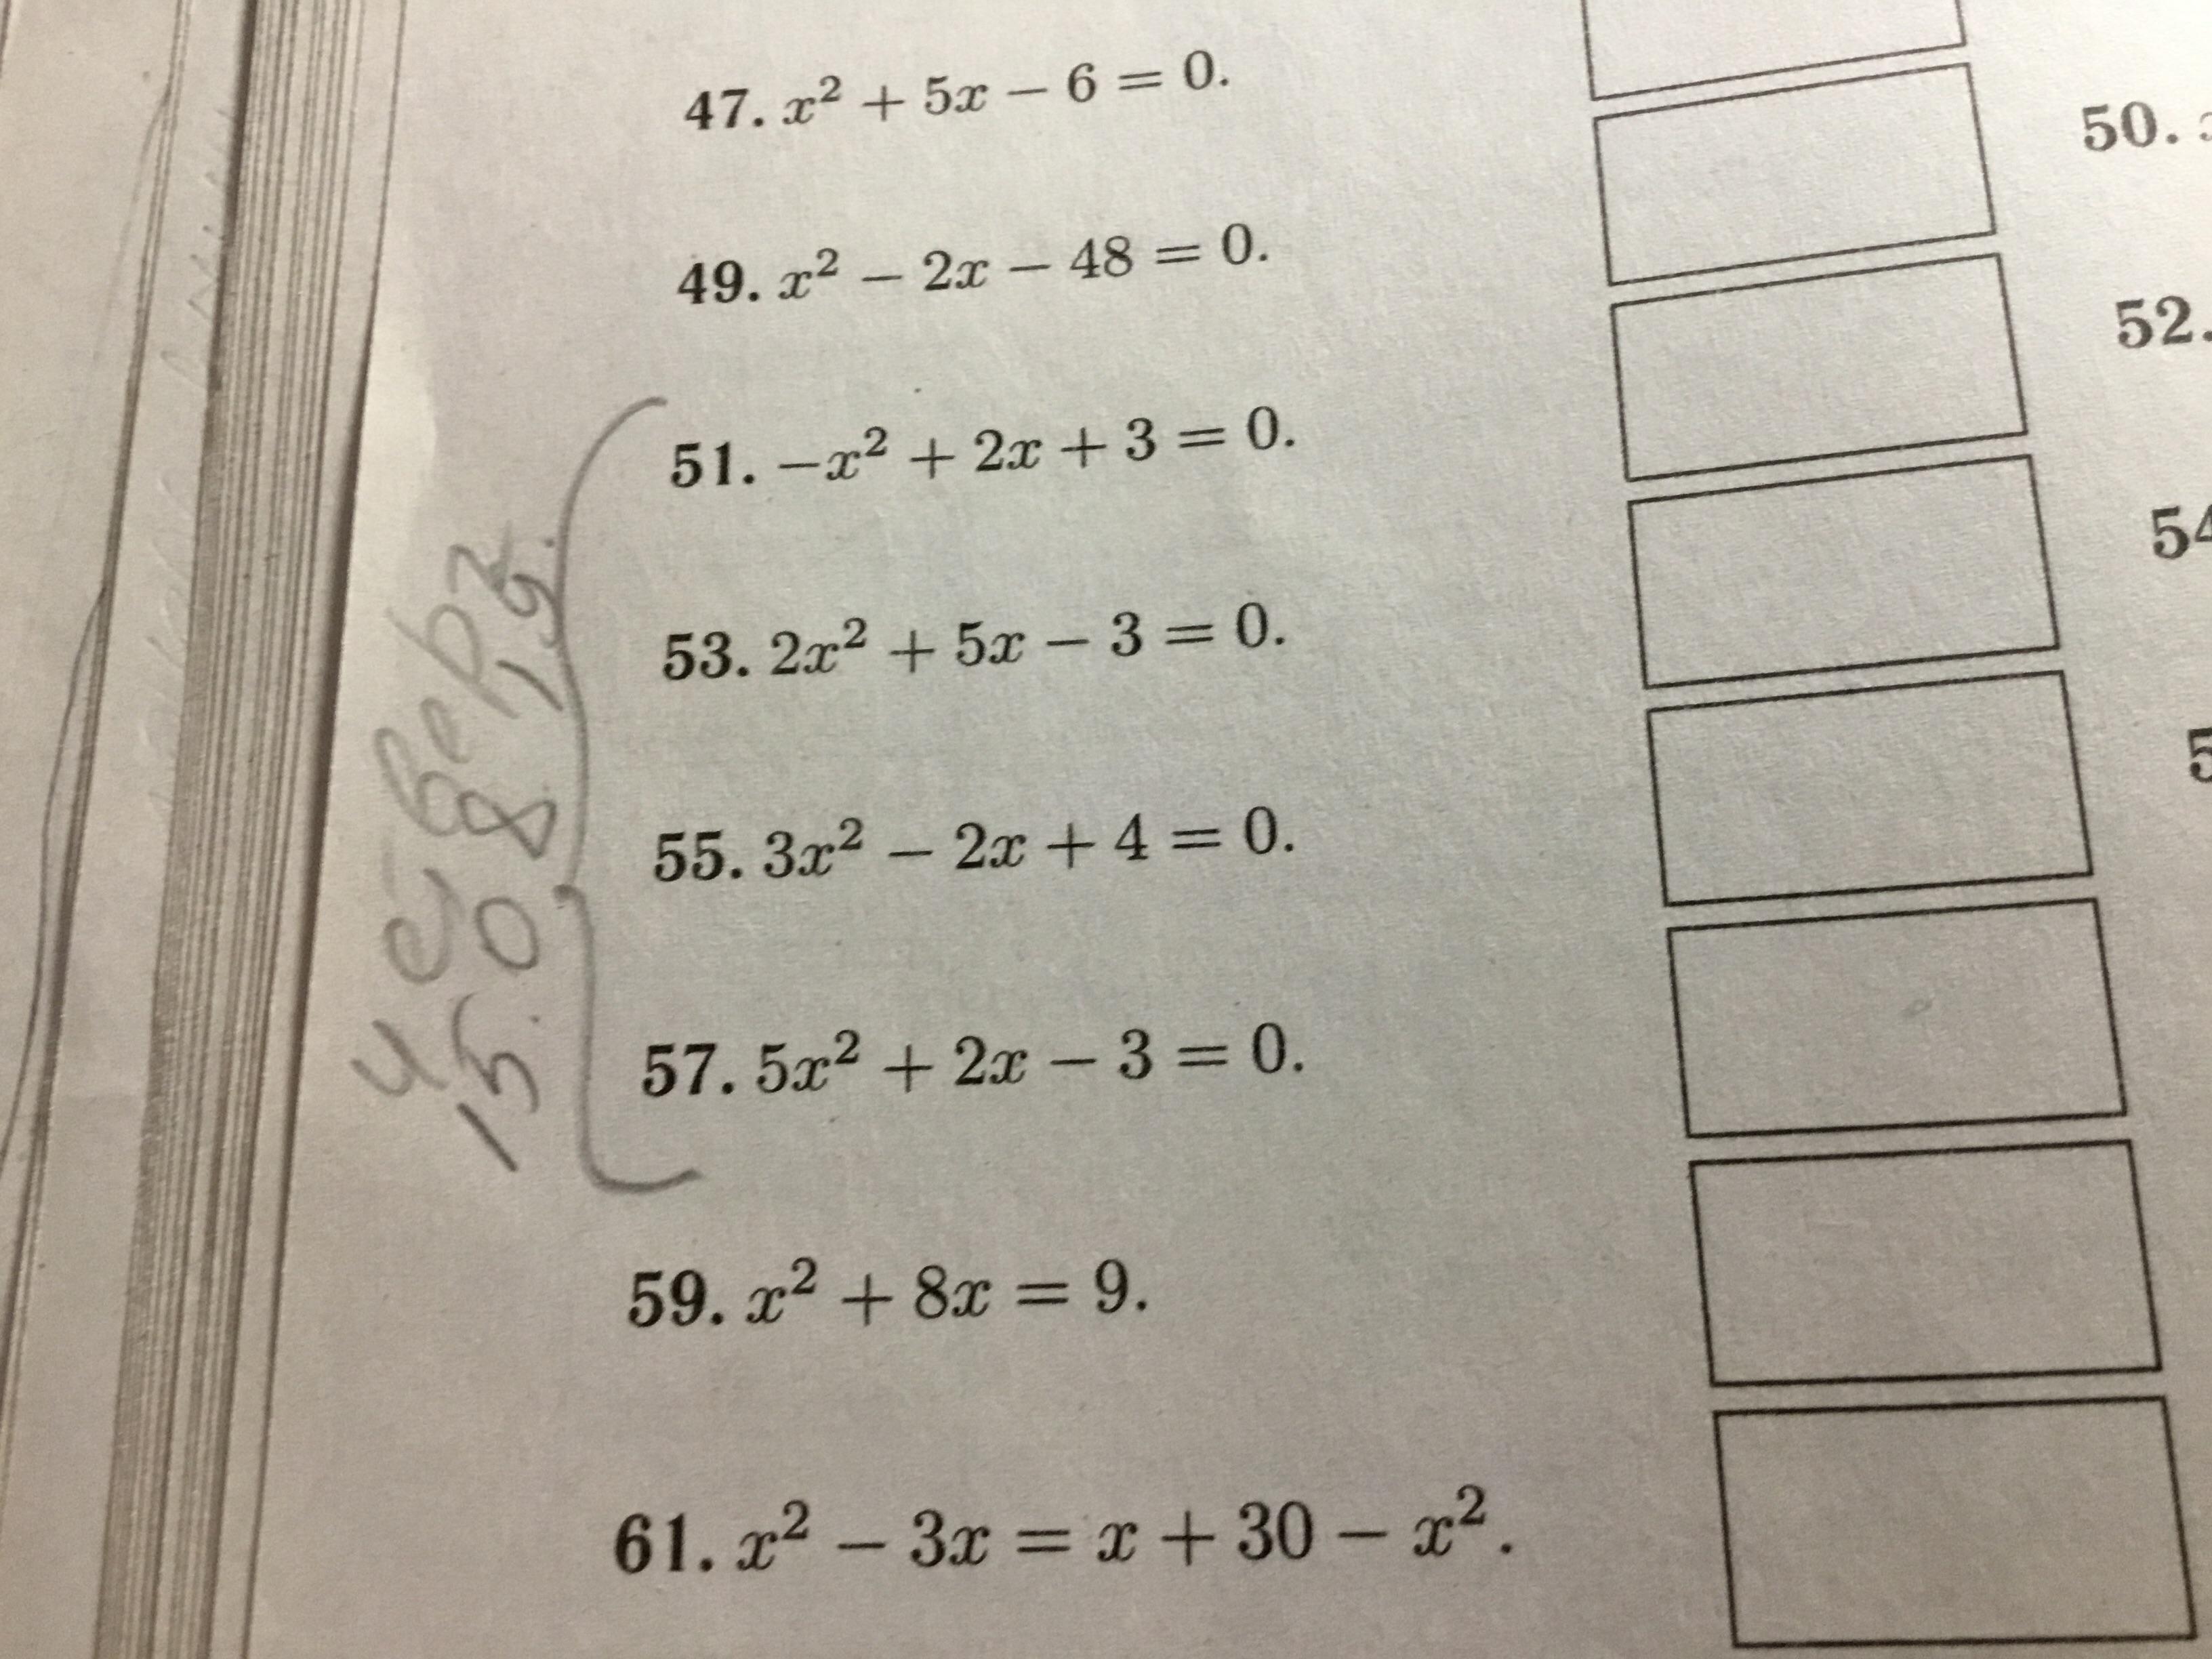 47. x² + 5x − 6 = 0.
50.
49. x² − 2x − 48 = 0.
52.
51. −x² + 2x + 3 = 0.
54
53. 2x² + 5x − 3 = 0.
5
55. 3x² − 2x + 4 = 0.
57. 5x² + 2x − 3 = 0.
59. x² + 8x = 9.
61. x² − 3x = x + 30 − x².
15.08,19.